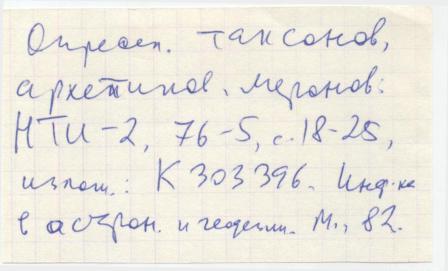 Определ. таксонов,
архетипов, меронов:
НТИ-2, 76-5, с. 18-25,
излож.: К 303396. Инф-ка
в астрон. и геодезии. М., 82.